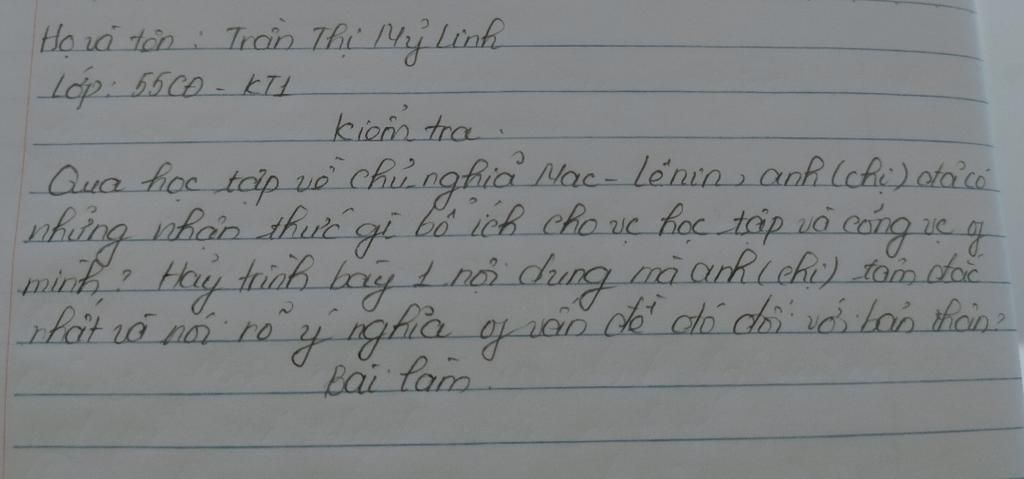 Họ và tên: Trần Thị Mỹ Linh
Lớp: 55CĐ - KT1
Kiểm tra.
Qua học tập về chủ nghĩa Mac - Lênin, anh (chị) đã có
những nhận thức gì bổ ích cho vc học tập và công vc of
mình? Hãy trình bày 1 nội dung mà anh (chị) tâm đắc
nhất và nói rõ ý nghĩa of vấn đề đó đối với bản thân?
Bài làm.